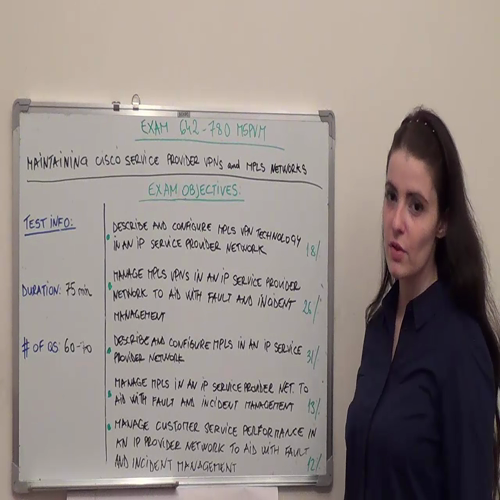 EXAM 642-780 MSPVM
MAINTAINING CISCO SERVICE PROVIDER VPNS and MPLS NETWORKS
EXAM OBJECTIVES:
TEST INFO:
DURATION: 75 min
# OF QS: 60-70
DESCRIBE AND CONFIGURE MPLS VPN TECHNOLOGY
IN AN IP SERVICE PROVIDER NETWORK 18%
MANAGE MPLS VPNS IN AN IP SERVICE PROVIDER
NETWORK TO AID WITH FAULT AND INCIDENT 26%
MANAGEMENT
DESCRIBE AND CONFIGURE MPLS IN AN IP SERVICE
PROVIDER NETWORK 31%
MANAGE MPLS IN AN IP SERVICE PROVIDER NET. TO
AID WITH FAULT AND INCIDENT MANAGEMENT 13%
MANAGE CUSTOMER SERVICE PERFORMANCE IN
AN IP PROVIDER NETWORK TO AID WITH FAULT
AND INCIDENT MANAGEMENT 12%